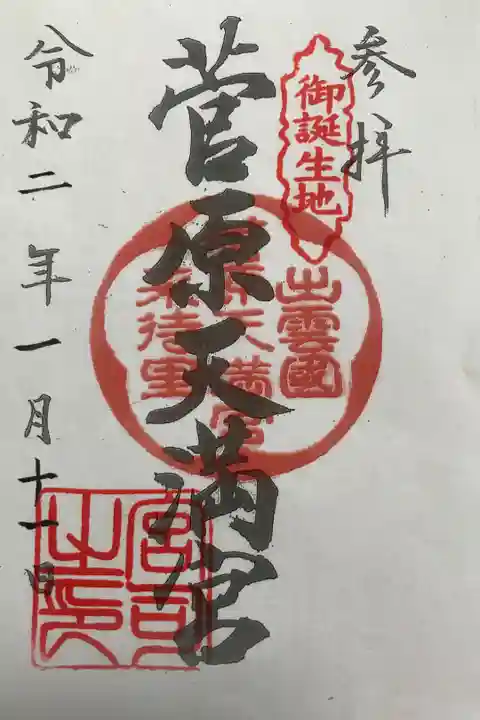 参拝
御誕生地
出雲國
菅原天満宮
来待里
菅原天満宮
令和二年一月十一日
宮司之印